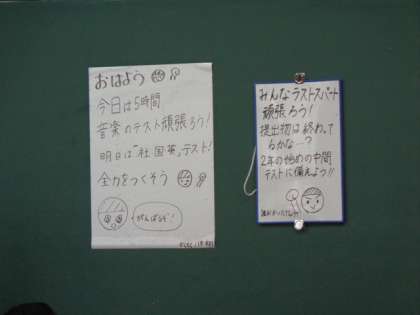 おはよう
今日は5時間
音楽のテスト頑張ろう!
明日は"社国英"テスト!
全力をつくそう
がんばるぞ!
みんなラストスパート
頑張ろう!
提出物は終わって
るかな〜?
2年の始めの中間
テストに備えよう!!